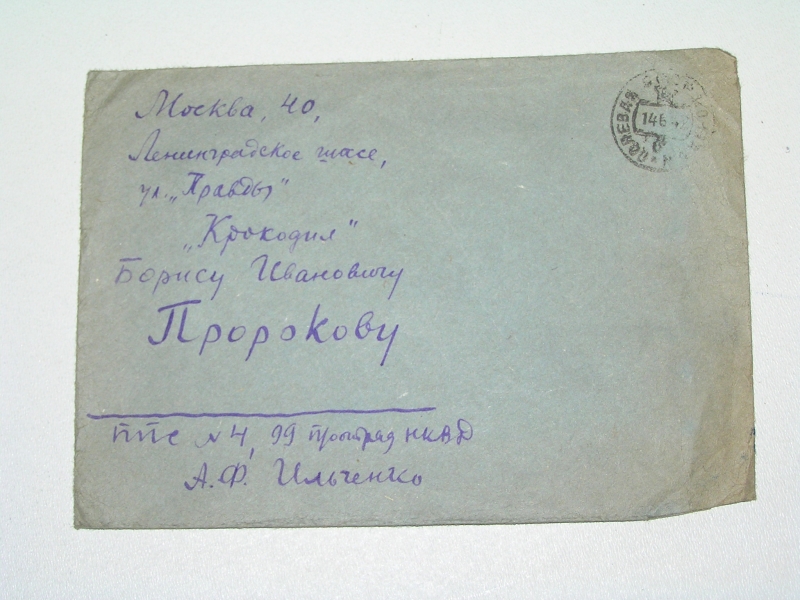 Москва, 40,
Ленинградское шасе,
ул. „Правды"
„Крокодил"
Борису Ивановичу
Пророкову
ППС № 4, 99 НКВД
А.Ф. Ильченко
ПОЛЕВАЯ
14 6